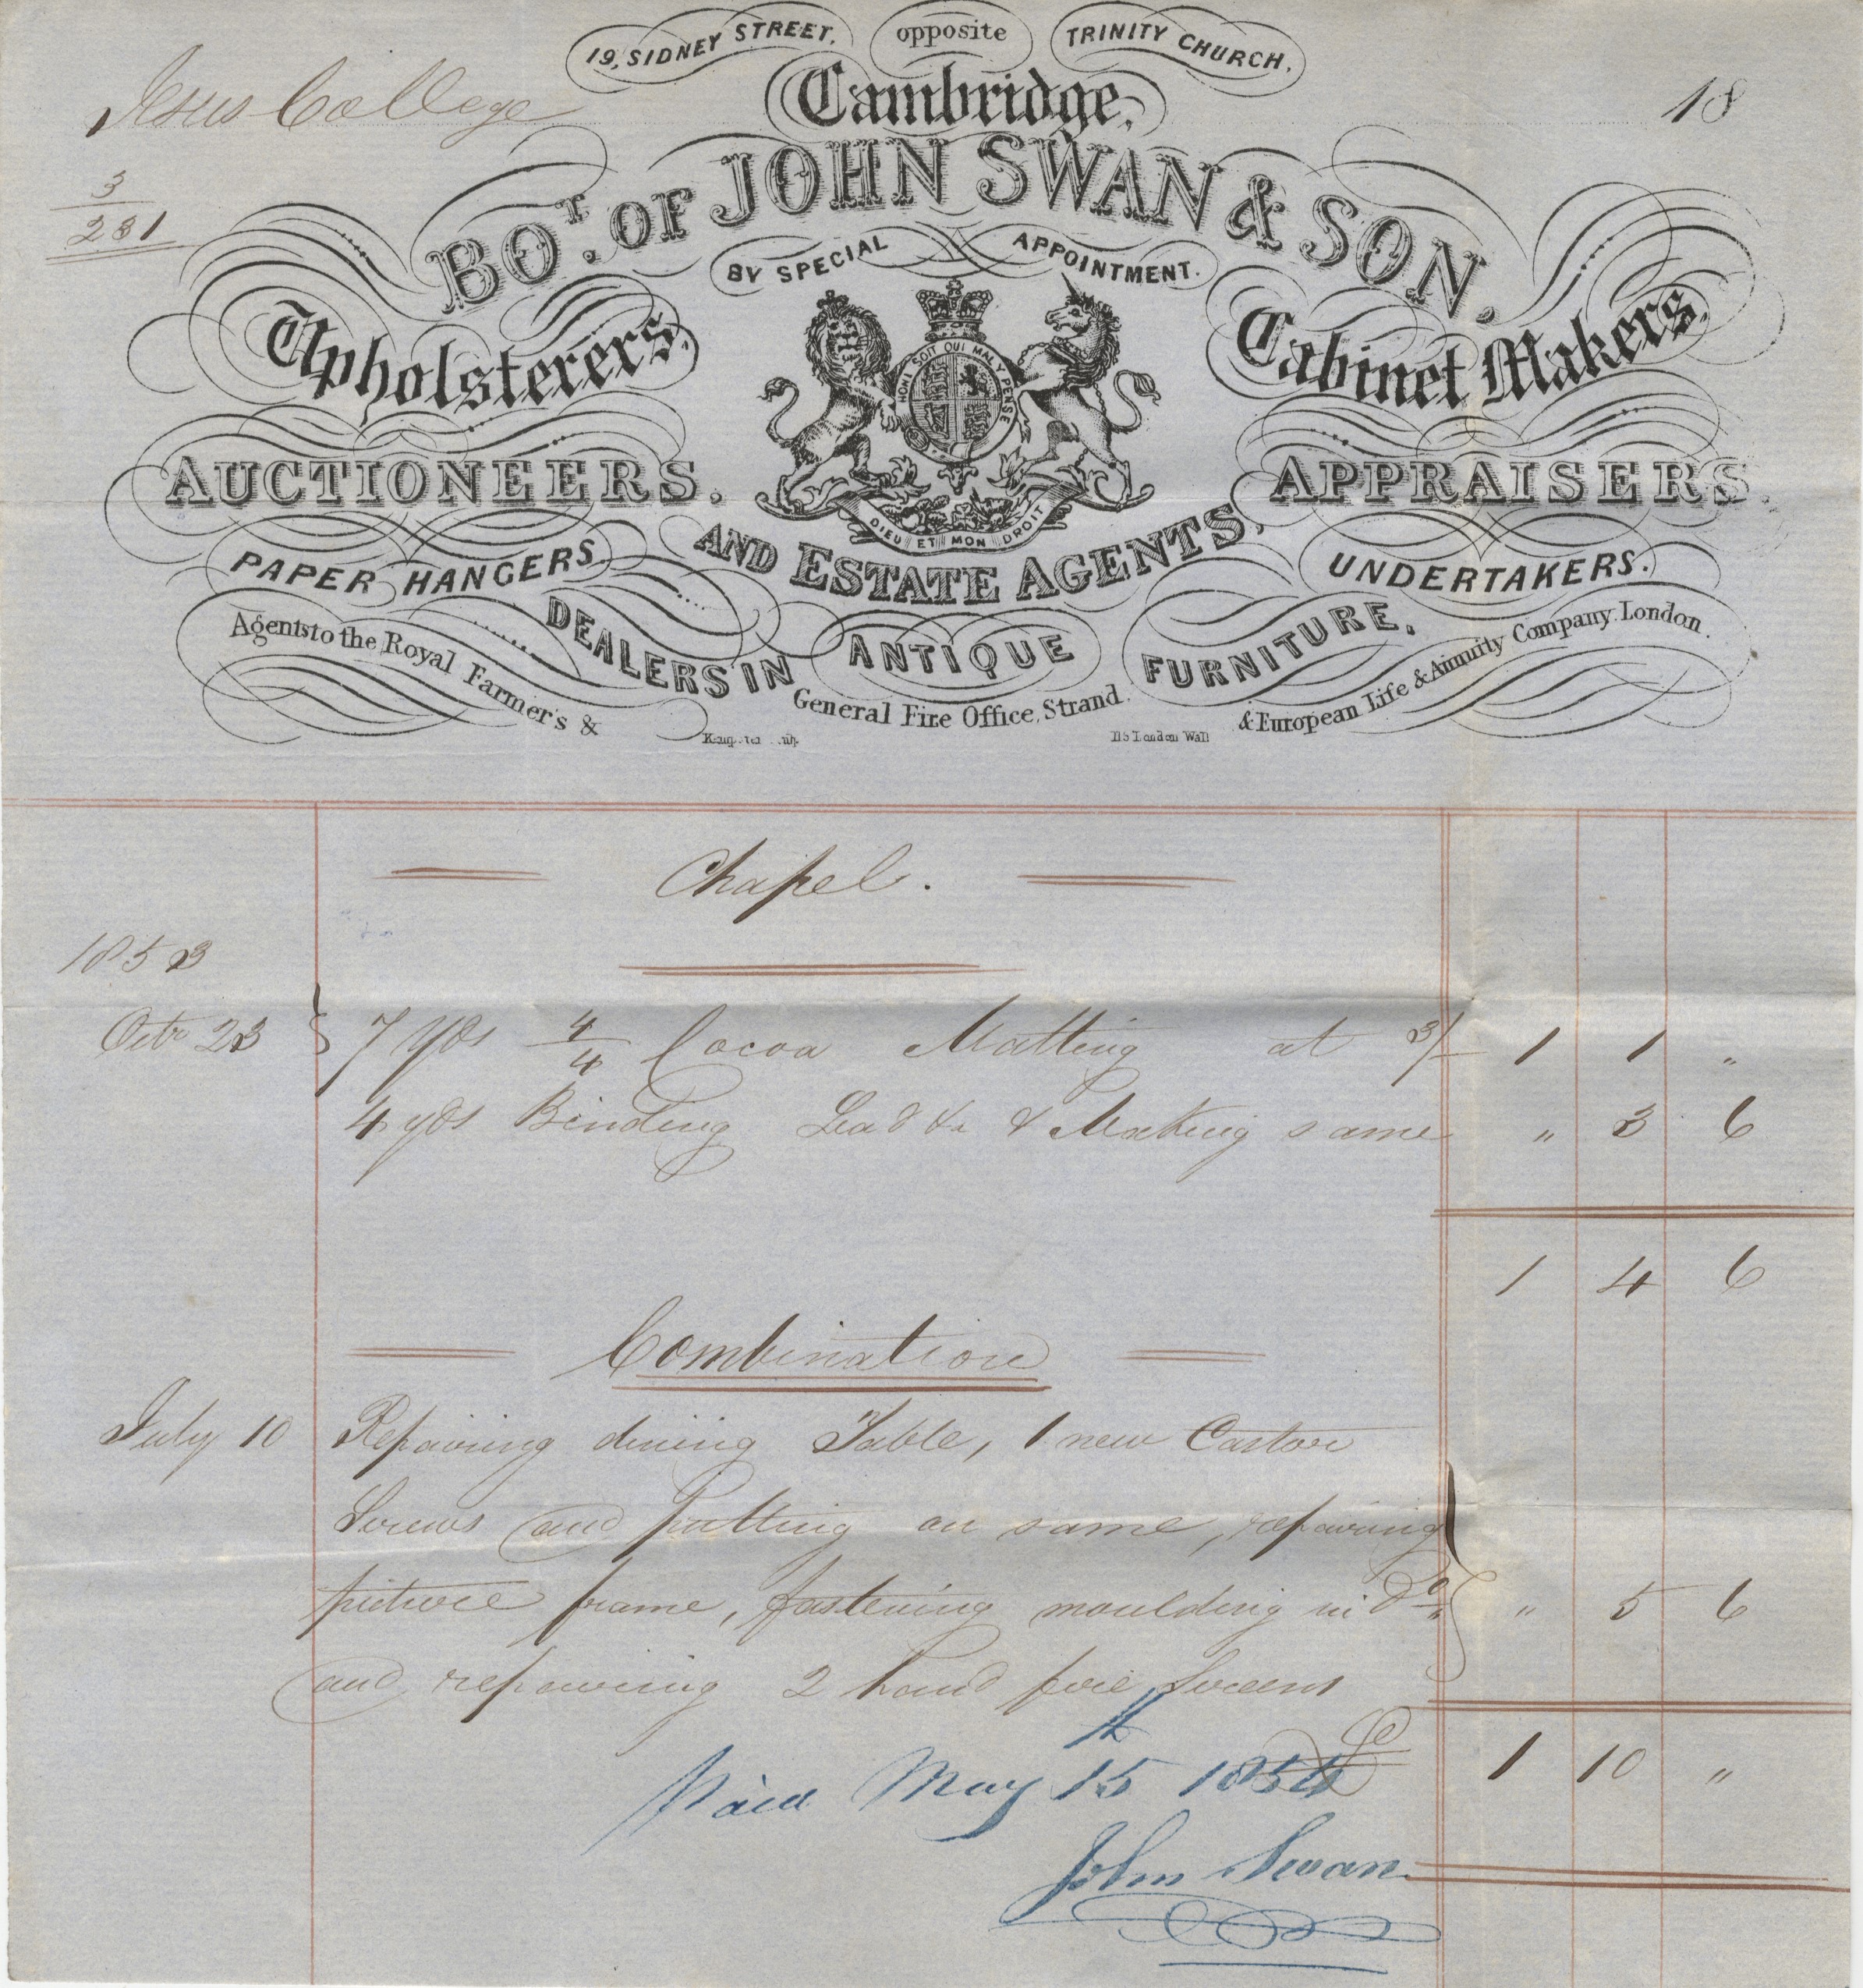 19, SIDNEY STREET, opposite TRINITY CHURCH.
Jesus College
Cambridge,
18
3
281
BOT. OF JOHN SWAN & SON,
BY SPECIAL APPOINTMENT.
Upholsterers, Cabinet Makers,
HONI SOIT QUI MAL Y PENSE
AUCTIONEERS. APPRAISERS.
DIEU ET MON DROIT
AND ESTATE AGENTS,
PAPER HANGERS UNDERTAKERS.
DEALERS IN ANTIQUE FURNITURE,
Agents to the Royal Farmer's & General Fire Office, Strand. & European Life & Annuity Company. London.
115 London Wall
Chapel.
1853
Octr 23 7 yds 4/4 Cocoa Matting at 3/- 1 1 "
4 yds Binding Lead &c & Making same " 3 6
1 4 6
Combination
July 10 Repairing dining Table, 1 new Castor
Screws and putting on same, repairing
picture frame, fastening moulding in Do " 5 6
and repairing 2 hand fire Screens
1 10 "
Paid May 15th 1854
John Swan